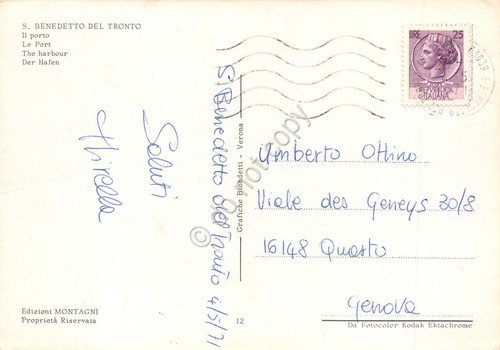 S. BENEDETTO DEL TRONTO
Il porto
Le Port
The harbour
Der Hafen
Saluti
Mirella
S. Benedetto del Tronto 4/5/71
Grafiche Biondetti - Verona
LIRE 25
REPVBBLICA
ITALIANA
Umberto Ottino
Viale des Geneys 30/8
16148 Quarto
Genova
Edizioni MONTAGNI
Proprietà Riservata
12
Da Fotocolor Kodak Ektachrome
do not copy